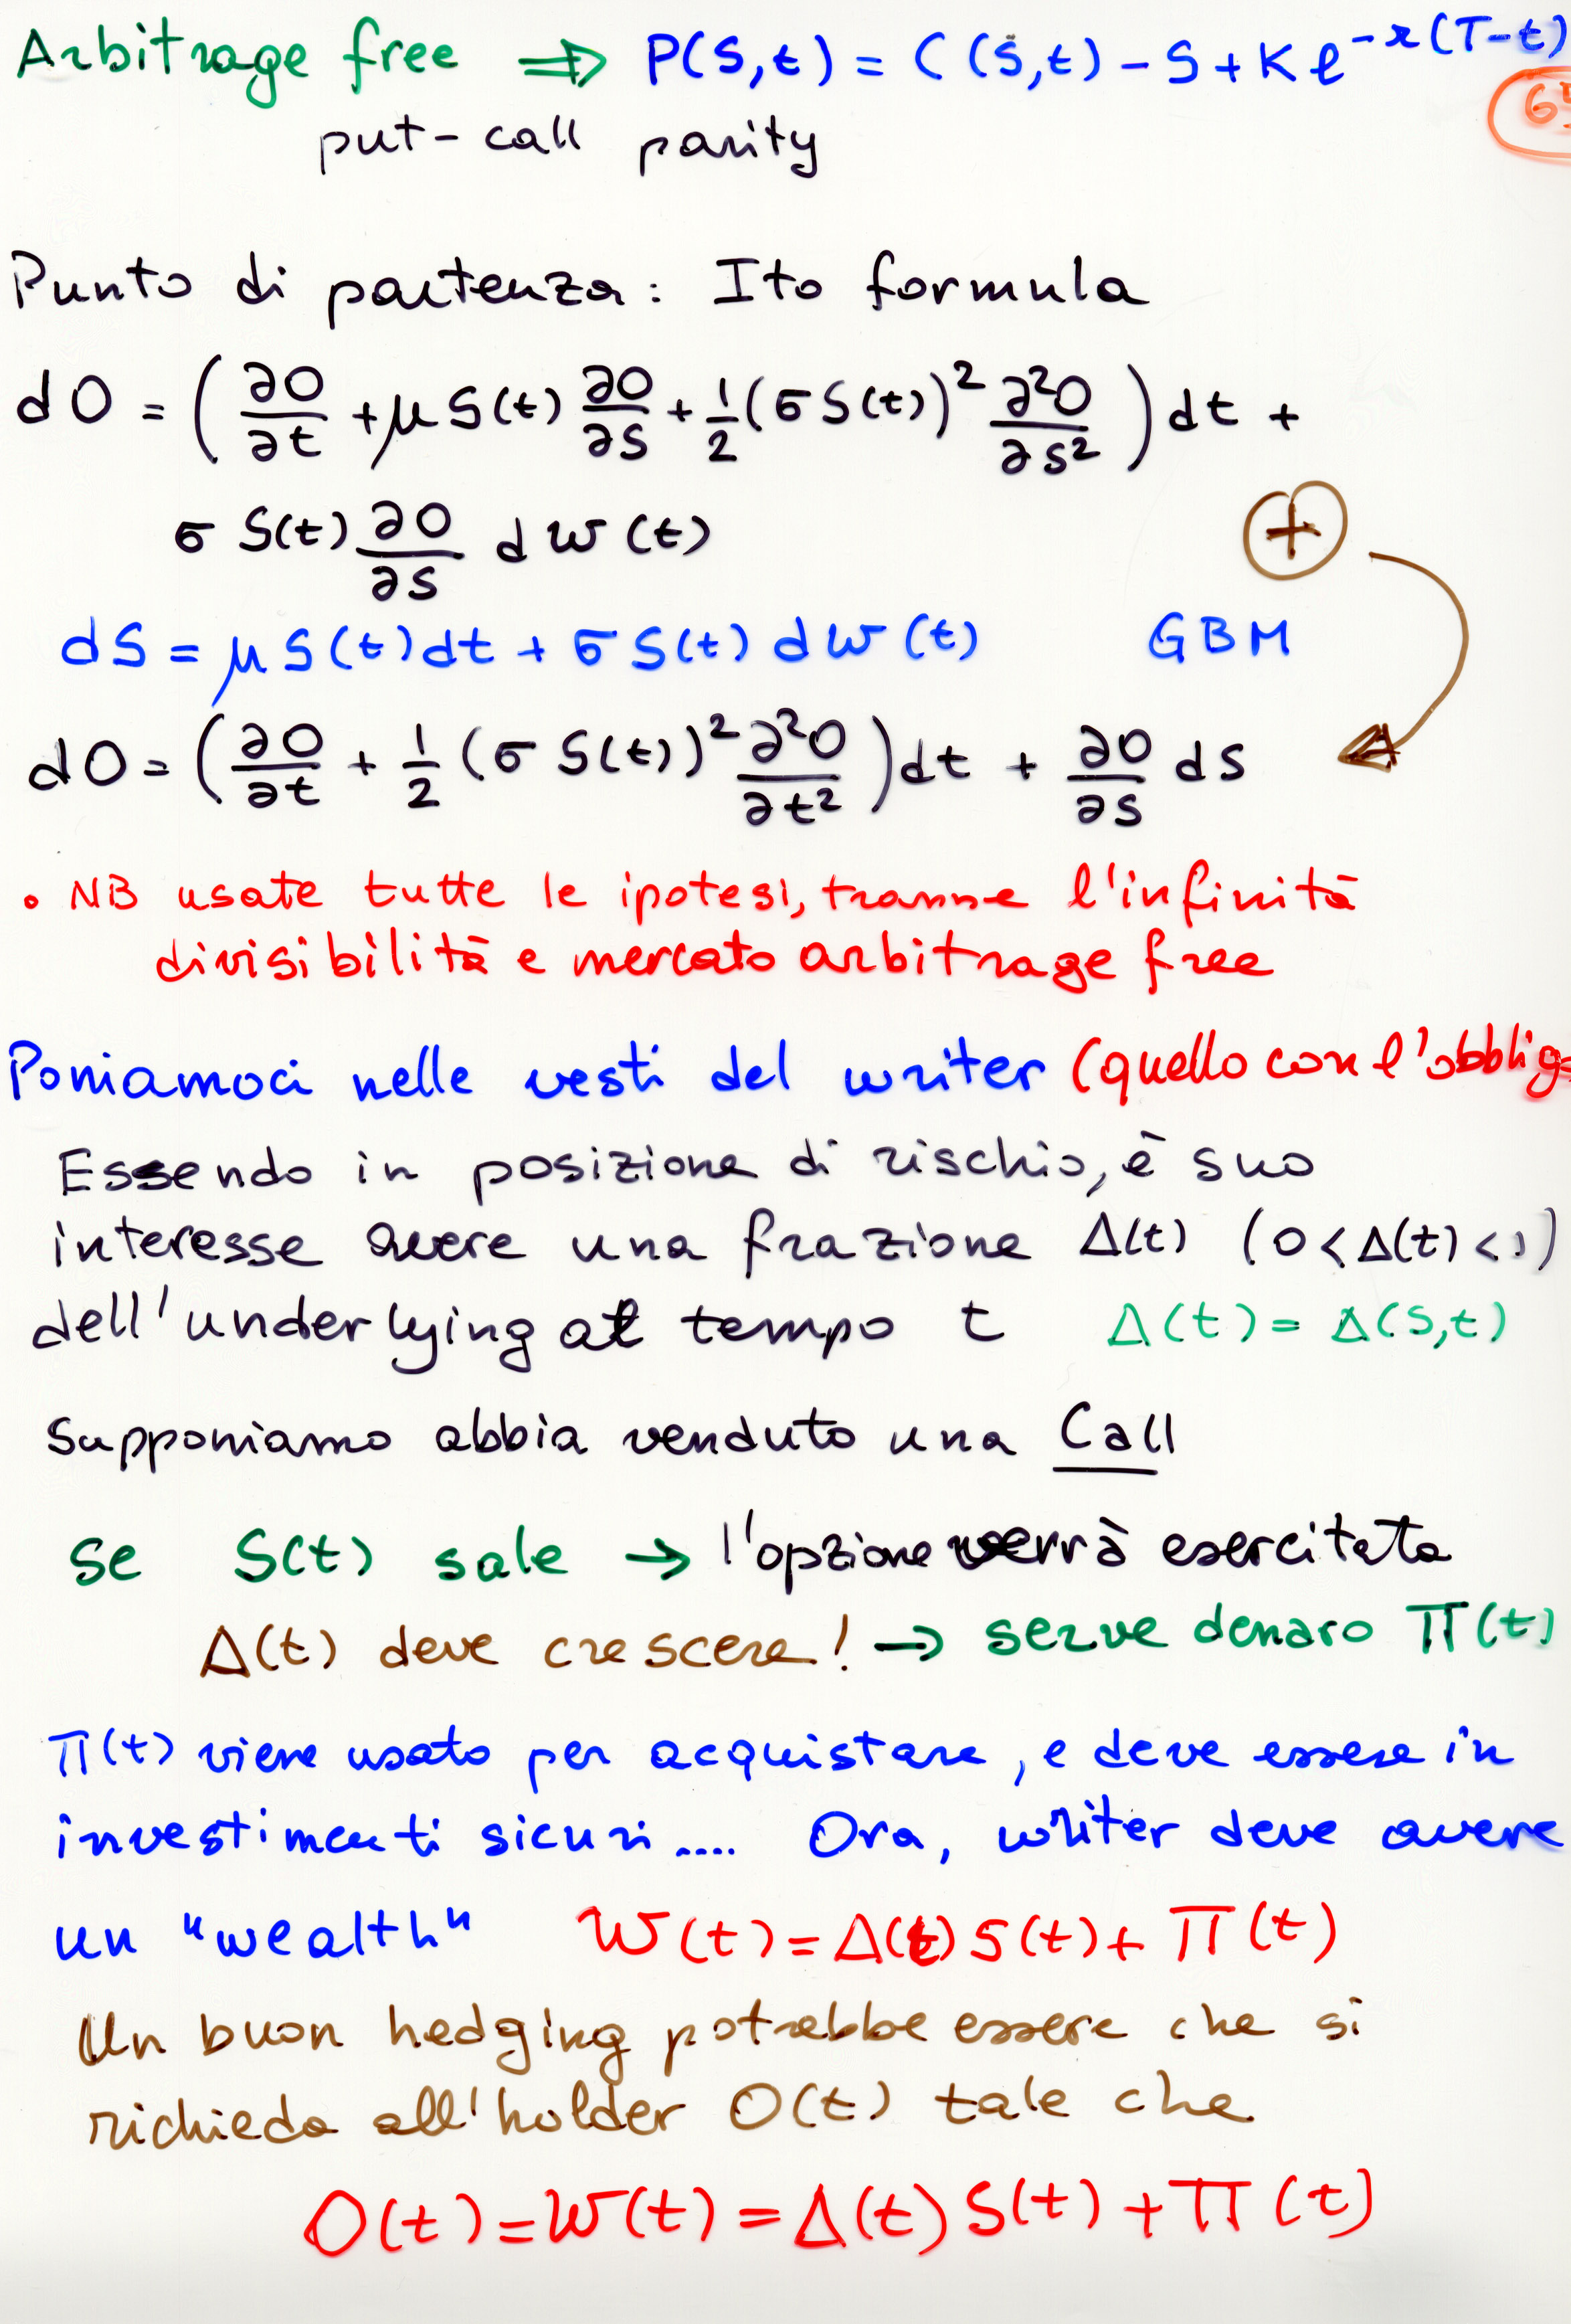 Arbitrage free ⇒ P(S,t) = C(S,t) - S + K e^{-r(T-t)}
put-call parity
Punto di partenza: Ito formula
dO = (∂O/∂t + μ S(t) ∂O/∂S + 1/2 (σ S(t))² ∂²O/∂S²) dt +
σ S(t) ∂O/∂S dW(t)
+
dS = μ S(t) dt + σ S(t) dW(t) GBM
dO = (∂O/∂t + 1/2 (σ S(t))² ∂²O/∂t²) dt + ∂O/∂S dS
• NB usate tutte le ipotesi, tranne l'infinità
divisibilità e mercato arbitrage free
Poniamoci nelle vesti del writer (quello con l'obblig
Essendo in posizione di rischio, è suo
interesse avere una frazione Δ(t) (0<Δ(t)<1)
dell'underlying at tempo t Δ(t) = Δ(S,t)
Supponiamo abbia venduto una Call
se S(t) sale → l'opzione verrà esercitata
Δ(t) deve crescere! → serve denaro Π(t)
Π(t) viene usato per acquistare, e deve essere in
investimenti sicuri.... Ora, writer deve avere
un "wealth" W(t) = Δ(t) S(t) + Π(t)
Un buon hedging potrebbe essere che si
richieda all'holder O(t) tale che
O(t) = W(t) = Δ(t) S(t) + Π(t)